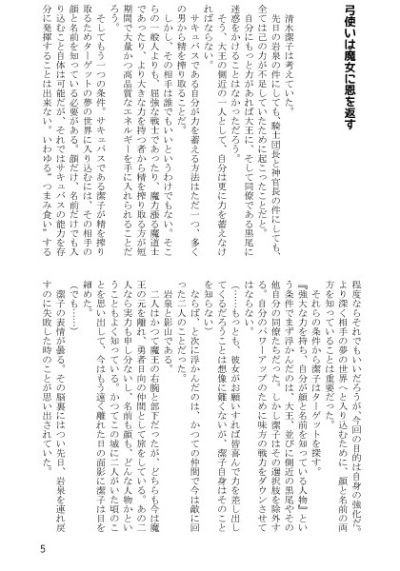 弓使いは魔女に恩を返す
　清水潔子は考えていた。
　先日の岩泉の件にしても、騎士団長と神官長の件にしても、
全ては己の力が不足していたために起こったことだと。
　自分にもっと力があれば大王に、そして同僚である黒尾に
迷惑をかけることはなかっただろう。
　そう、大王の側近の一人として、自分は更に力を蓄えなけ
ればならない。
　サキュバスである自分が力を蓄える方法はただ一つ、多く
の男から精を搾り取ることだ。
　しかし、その相手は誰でもいいというわけでもない。そこ
らの一般人よりも、屈強な戦士であったり、魔力漲る魔道士
であったり、より大きな力を持つ者から精を搾り取る方が短
期間で大量かつ高品質なエネルギーを手に入れられることだ
ろう。
　そしてもう一つの条件。サキュバスである潔子が精を搾り
取るためターゲットの夢の世界に入り込むには、その相手の
顔と名前を知っている必要がある。顔だけ、名前だけでも入
り込むこと自体は可能だが、それではサキュバスの能力を存
分に発揮することは出来ない。いわゆる〝つまみ食い〟する
程度ならそれでもいいだろうが、今回の目的は自身の強化だ。
より深く相手の夢の世界へと入り込むために、顔と名前の両
方を知っていることは重要だった。
　それらの条件から潔子はターゲットを探す。
『強大な力を持ち、自分が顔と名前を知っている人物』とい
う条件でまず浮かんだのは、大王、並びに側近の黒尾やその
他自分の同僚たちだった。しかし潔子はその選択肢を除外す
る。自分のパワーアップのために味方の戦力をダウンさせて
はならない。
（……もっとも、彼女がお願いすれば皆喜んで力を差し出し
てくるだろうことは想像に難くないが、潔子自身はそのこと
を知らない）
　ならば、と次に浮かんだのは、かつての仲間で今は敵に回
った二人のことだった。
　岩泉と影山である。
　二人はかつて魔王の右腕と部下だったが、どちらも今は魔
王の元を離れ、勇者日向の仲間として旅をしている。あの二
人なら実力も申し分ないし、名前も顔も、どんな人物かとい
うこともよく知っている。かつてこの城に二人がいた頃のこ
とを思い出して、今はもう遠く離れた日の面影に潔子は目を
細めた。
（でも……）
　潔子の表情が曇る。その脳裏にはつい先日、岩泉を連れ戻
すのに失敗した時のことが思い出されていた。
5